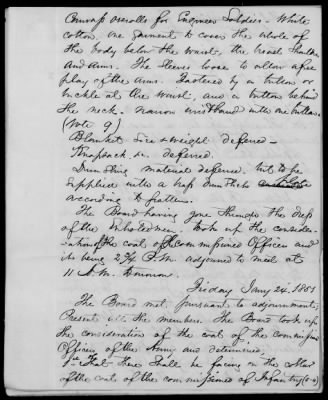 Canvas overalls for Engineer Soldiers. White
cotton, one garment to cover the whole of
the body below the waist, the breast, shoulders
and arms. The sleeves loose to allow a free
play of the arms. Fastened by a button or
buckle at the waist, and a button behind
the neck. narrow wristband with one button.
(Vote 9)
Blanket Size & weight deferred—
Knapsack deferred
material deferred, but to be
supplied with a
according to pattern.
The Board having gone through the dress
of the enlisted men. took up the consider-
ation of the coat of the commissioned Officers and
its being 2 3/4 P.M. adjourned to meet at
11 A.M. tomorrow.
Friday Jany 24. 1851
The Board met, pursuant to adjournment,
Present the members. The Board took up
the consideration of the coat of the commissioned
Officers of the Army and determined,
1st That there shall be facing on the
of the coat of the commissioned of Infantry (8-0)